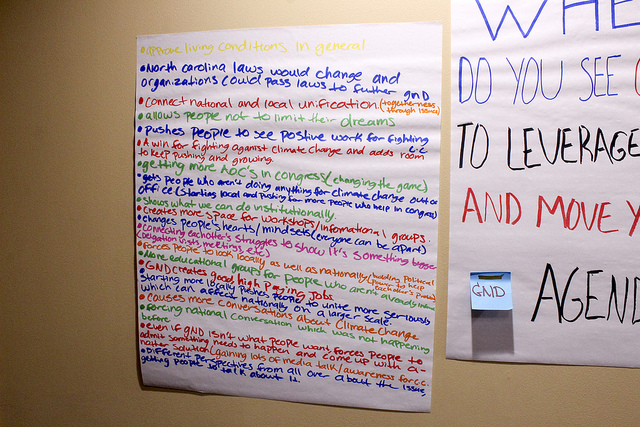 •approve living conditions in general
•North carolina laws would change and
organizations could pass laws to further GND
•Connect national and local unification (togetherness
through issues)
•allows people not to limit their dreams
•pushes people to see postive work for fighting
c.c
•A win for fighting aganist climate change and adds room
to keep pushing and growing.
•getting more AOC's in congress/(changing the game)
•gets people who aren't doing anything for climate change out of
office (starting local and pushing for more people who help in congress)
•Shows what we can do institutionally.
•Creates more space for workshops/informational groups.
•changes people's hearts/mindsets (everyone can be apart)
•Connecting eachother's struggles to show it's something bigger
(delegation visits, meetings, etc)
•forces people to look locally as well as nationally/building political
(power to help
•More educational groups for people who aren't already
•GND creates good high paying jobs
Starting more locally pushes people to unite more seriously
which can affect nationally on a larger scale.
•causes more conversations about climate change
•forcing national conversation which was not happening
before
•even if GND isn't what people want forces people to
admit something needs to happen and come up with a
solution (gaining lots of media talk/awareness for c.c.
•Different perspectives from all over about the issue,
getting people to talk about it.
WHE
DO YOU SEE
TO LEVERAGE
AND MOVE Y
GND
AGEND